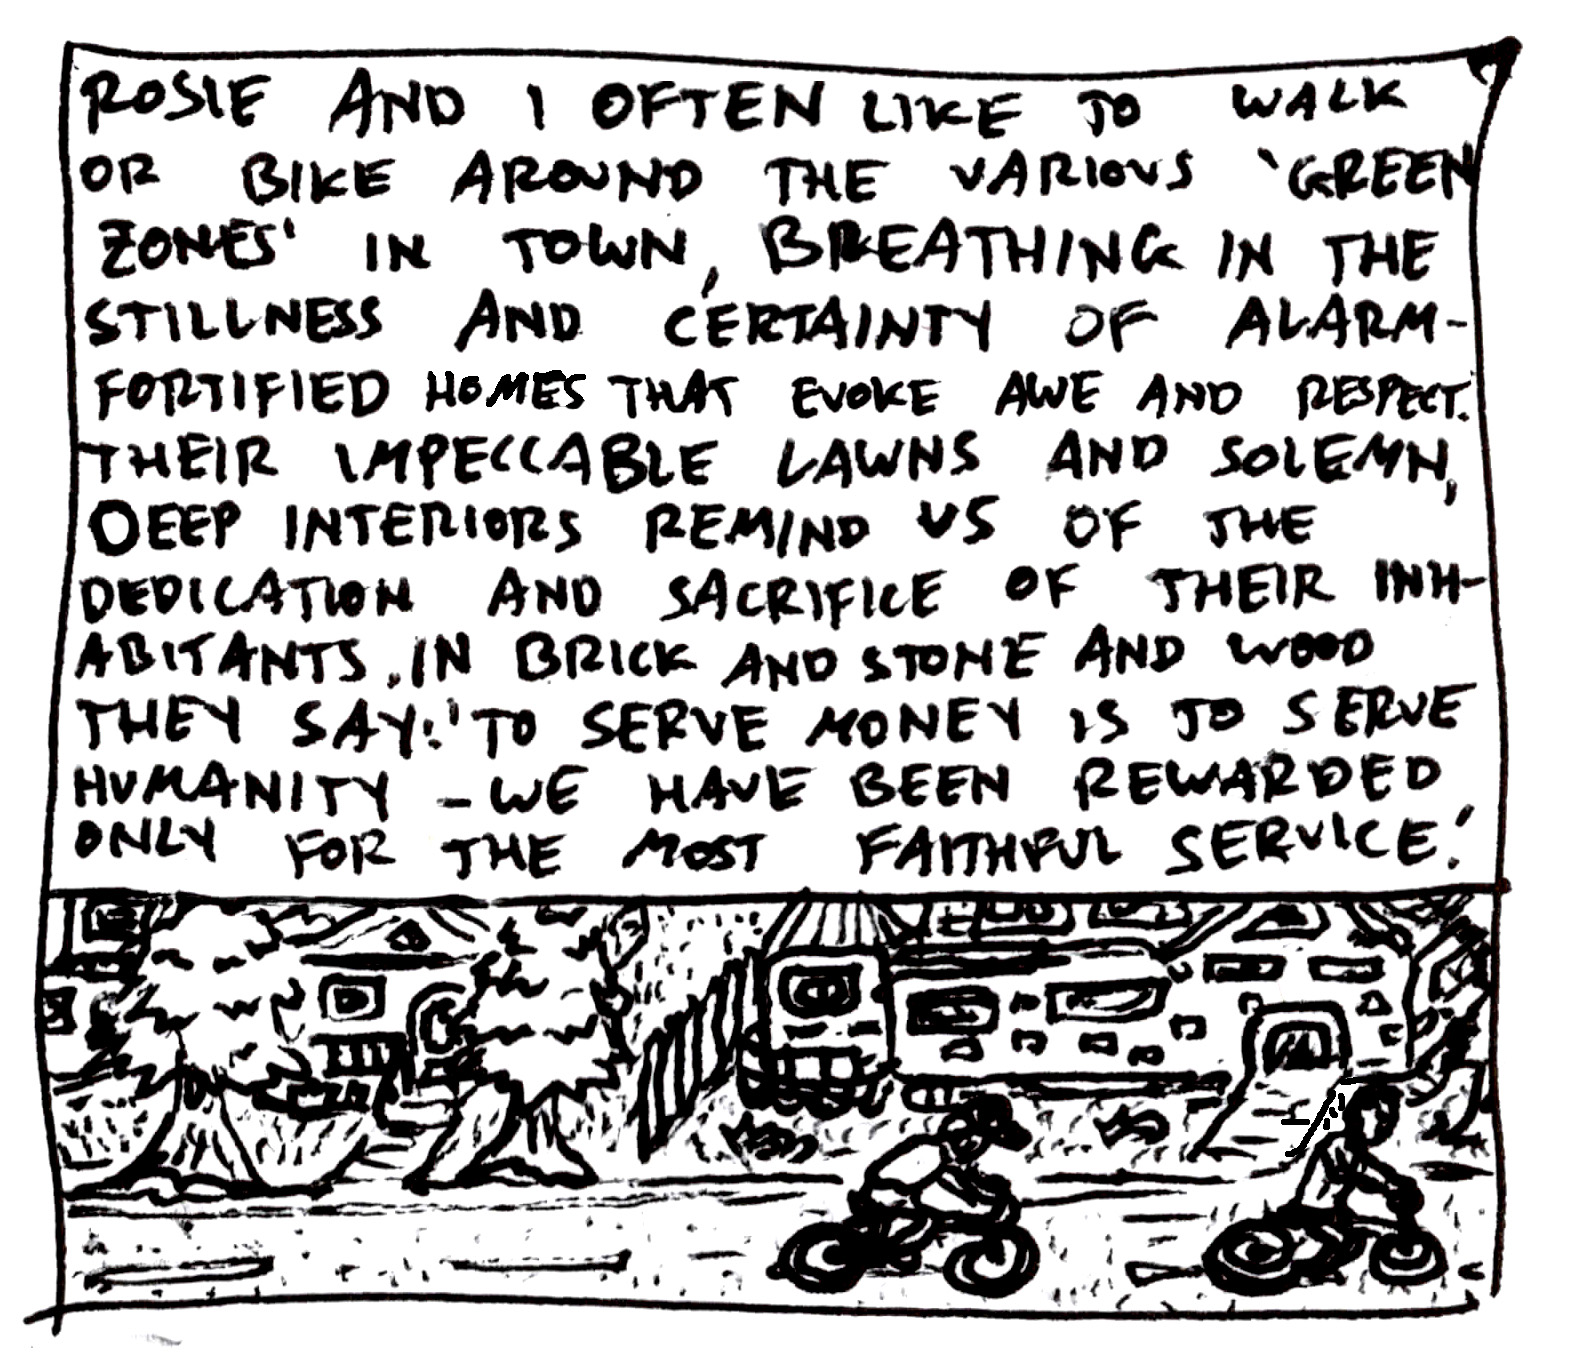 ROSIE AND I OFTEN LIKE TO WALK
OR BIKE AROUND THE VARIOUS 'GREEN
ZONES' IN TOWN, BREATHING IN THE
STILLNESS AND CERTAINTY OF ALARM-
FORTIFIED HOMES THAT EVOKE AWE AND RESPECT.
THEIR IMPECCABLE LAWNS AND SOLEMN,
DEEP INTERIORS REMIND US OF THE
DEDICATION AND SACRIFICE OF THEIR INH-
ABITANTS. IN BRICK AND STONE AND WOOD
THEY SAY: 'TO SERVE MONEY IS TO SERVE
HUMANITY - WE HAVE BEEN REWARDED
ONLY FOR THE MOST FAITHFUL SERVICE.'